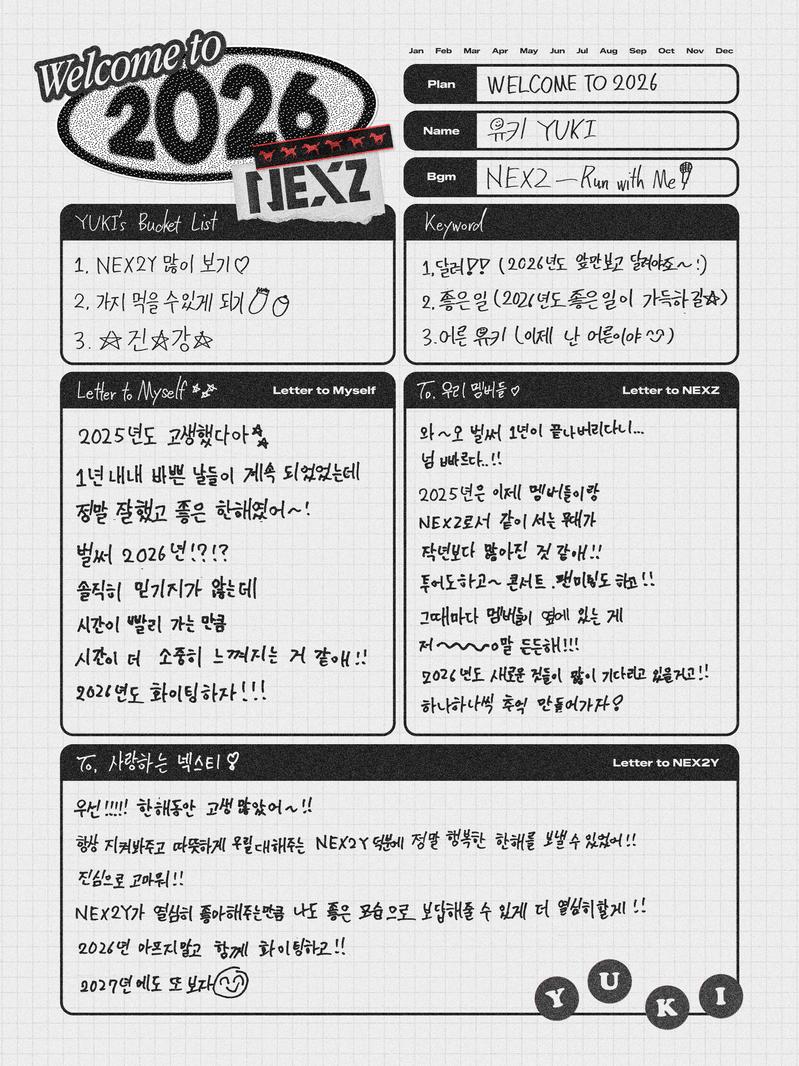 Welcome to
2026
NEXZ
Jan Feb Mar Apr May Jun Jul Aug Sep Oct Nov Dec
Plan WELCOME TO 2026
Name 유키 YUKI
Bgm NEXZ — Run with Me
YUKI's Bucket List
1. NEX2Y 많이 보기♡
2. 가지 먹을 수 있게 되기
3. ☆진☆강☆
Keyword
1. 달려!! (2026년도 앞만 보고 달려야죠~!)
2. 좋은 일 (2026년도 좋은 일이 가득하길☆)
3. 어른 유키 (이제 난 어른이야 ^^)
Letter to Myself ☆☆ Letter to Myself
2025년도 고생했다아☆☆
1년 내내 바쁜 날들이 계속 되었었는데
정말 잘했고 좋은 한해였어~!
벌써 2026년!?!?
솔직히 믿기지가 않는데
시간이 빨리 가는 만큼
시간이 더 소중히 느껴지는 거 같애!!
2026년도 화이팅하자!!!
To. 우리 멤버들♡ Letter to NEXZ
와~오 벌써 1년이 끝나버리다니...
넘 빠르다..!!
2025년은 이제 멤버들이랑
NEXZ로서 같이 서는 무대가
작년보다 많아진 것 같애!!
투어도하고~ 콘서트. 팬미팅도 하고!!
그때마다 멤버들이 옆에 있는 게
저~~~~~o말 든든해!!!
2026년도 새로운 것들이 많이 기다리고 있을거고!!
하나하나씩 추억 만들어가자!
To. 사랑하는 넥스티♡ Letter to NEX2Y
우선!!!!! 한해동안 고생 많았어~!!
항상 지켜봐주고 따뜻하게 우릴 대해주는 NEX2Y 덕분에 정말 행복한 한해를 보낼 수 있었어!!
진심으로 고마워!!
NEX2Y가 열심히 좋아해주는만큼 나도 좋은 모습으로 보답해줄 수 있게 더 열심히할게!!
2026년 아프지말고 함께 화이팅하고!!
2027년에도 또 보자
YUKI